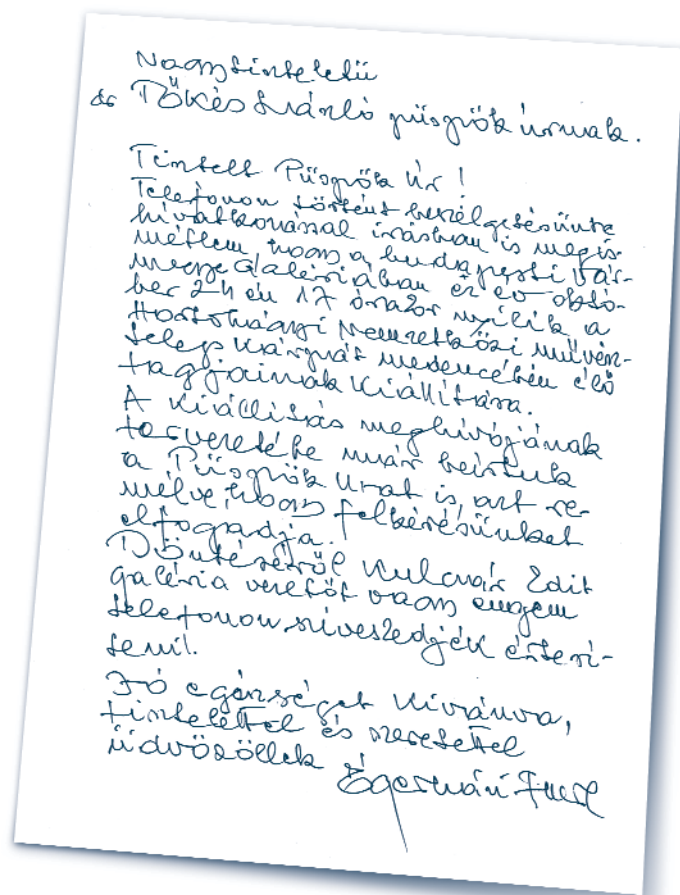 Nagytiszteletü
dr Tőkés László püspök úrnak.
Tisztelt Püspök Úr!
Telefonon történt beszélgetésünkre
hivatkozással írásban is megis-
métlem hogy a budapesti Vár-
megye Galériában ez év októ-
ber 24 én 17 órakor nyílik a
Hortobágyi Nemzetközi művész-
telep Kárpát medencében élő
tagjainak Kiállítása.
A kiállítás meghívójának
tervezetébe már beírtuk
a Püspök Urat is, azt re-
mélve, hogy felkérésünket
elfogadja.
Döntéséről Kulcsár Edit
galéria vezetőt vagy engem
telefonon sziveszkedjék értesí-
teni.
Jó egészséget kívánva,
tisztelettel és szeretettel
üdvözöllek Égerházi Imre